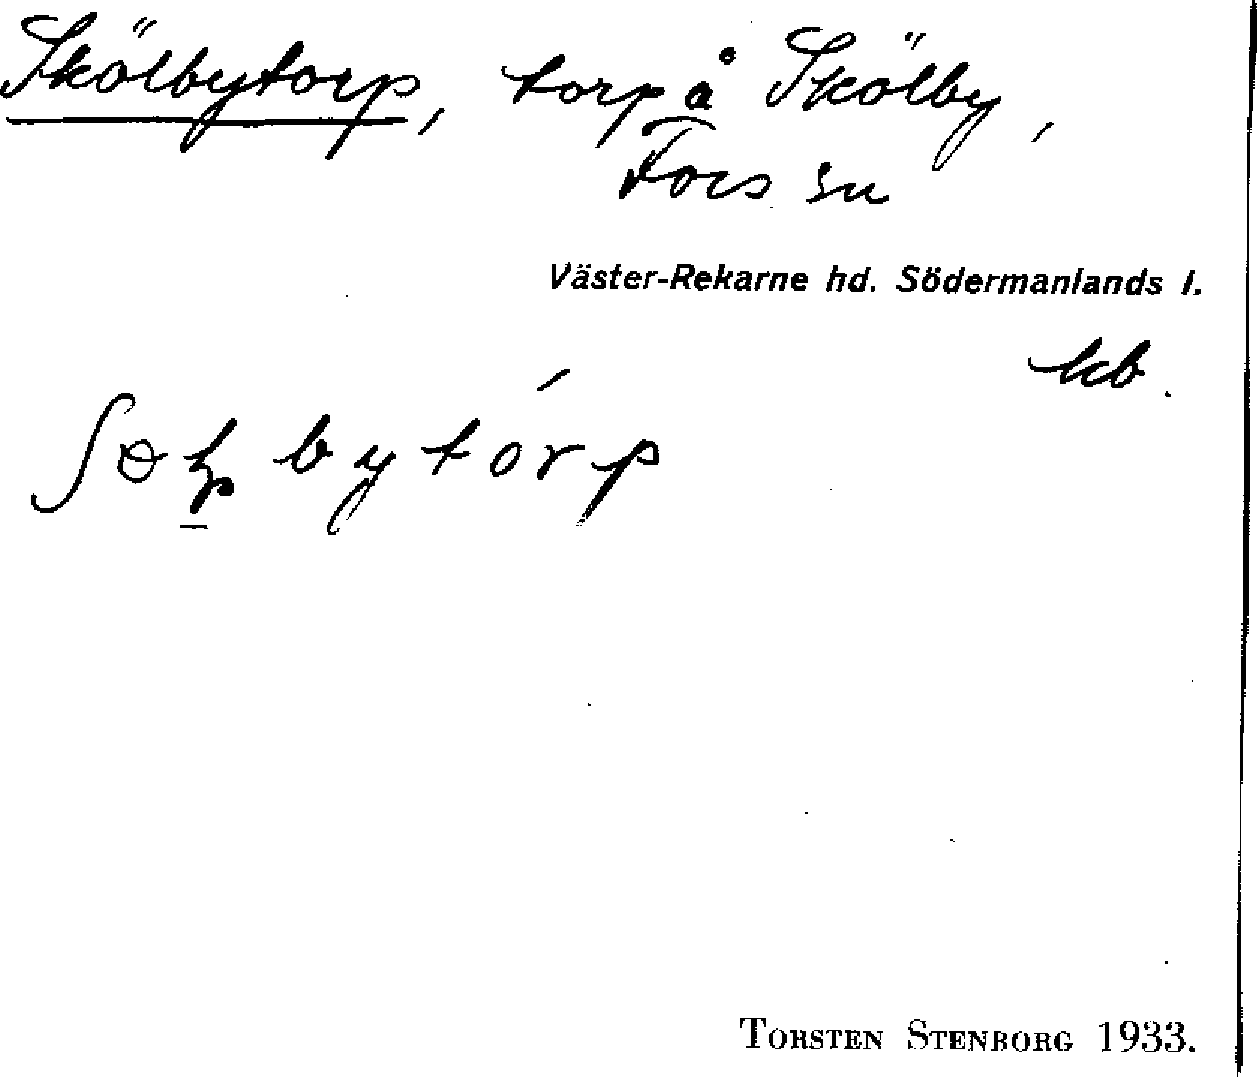 Skölbytorp, torp å Skölby,
Fors sn
Väster-Rekarne hd. Södermanlands l.
kb.
TORSTEN STENBORG 1933.